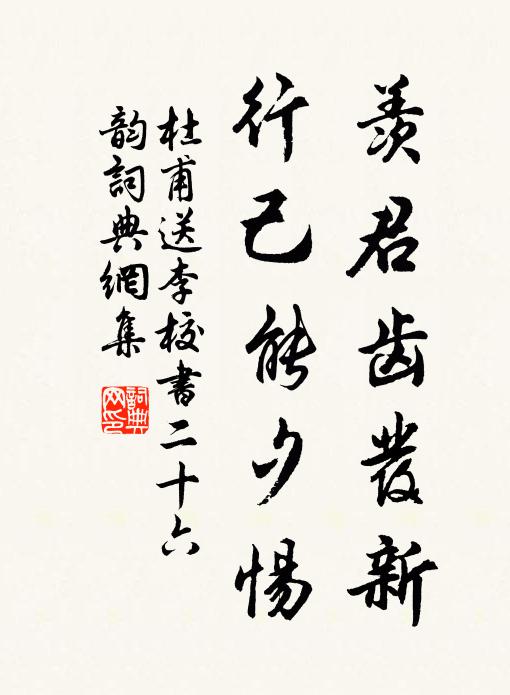 羨君齿發新
行己能夕惕
杜甫送李校書二十六
韵詞典網集
詞典
网印